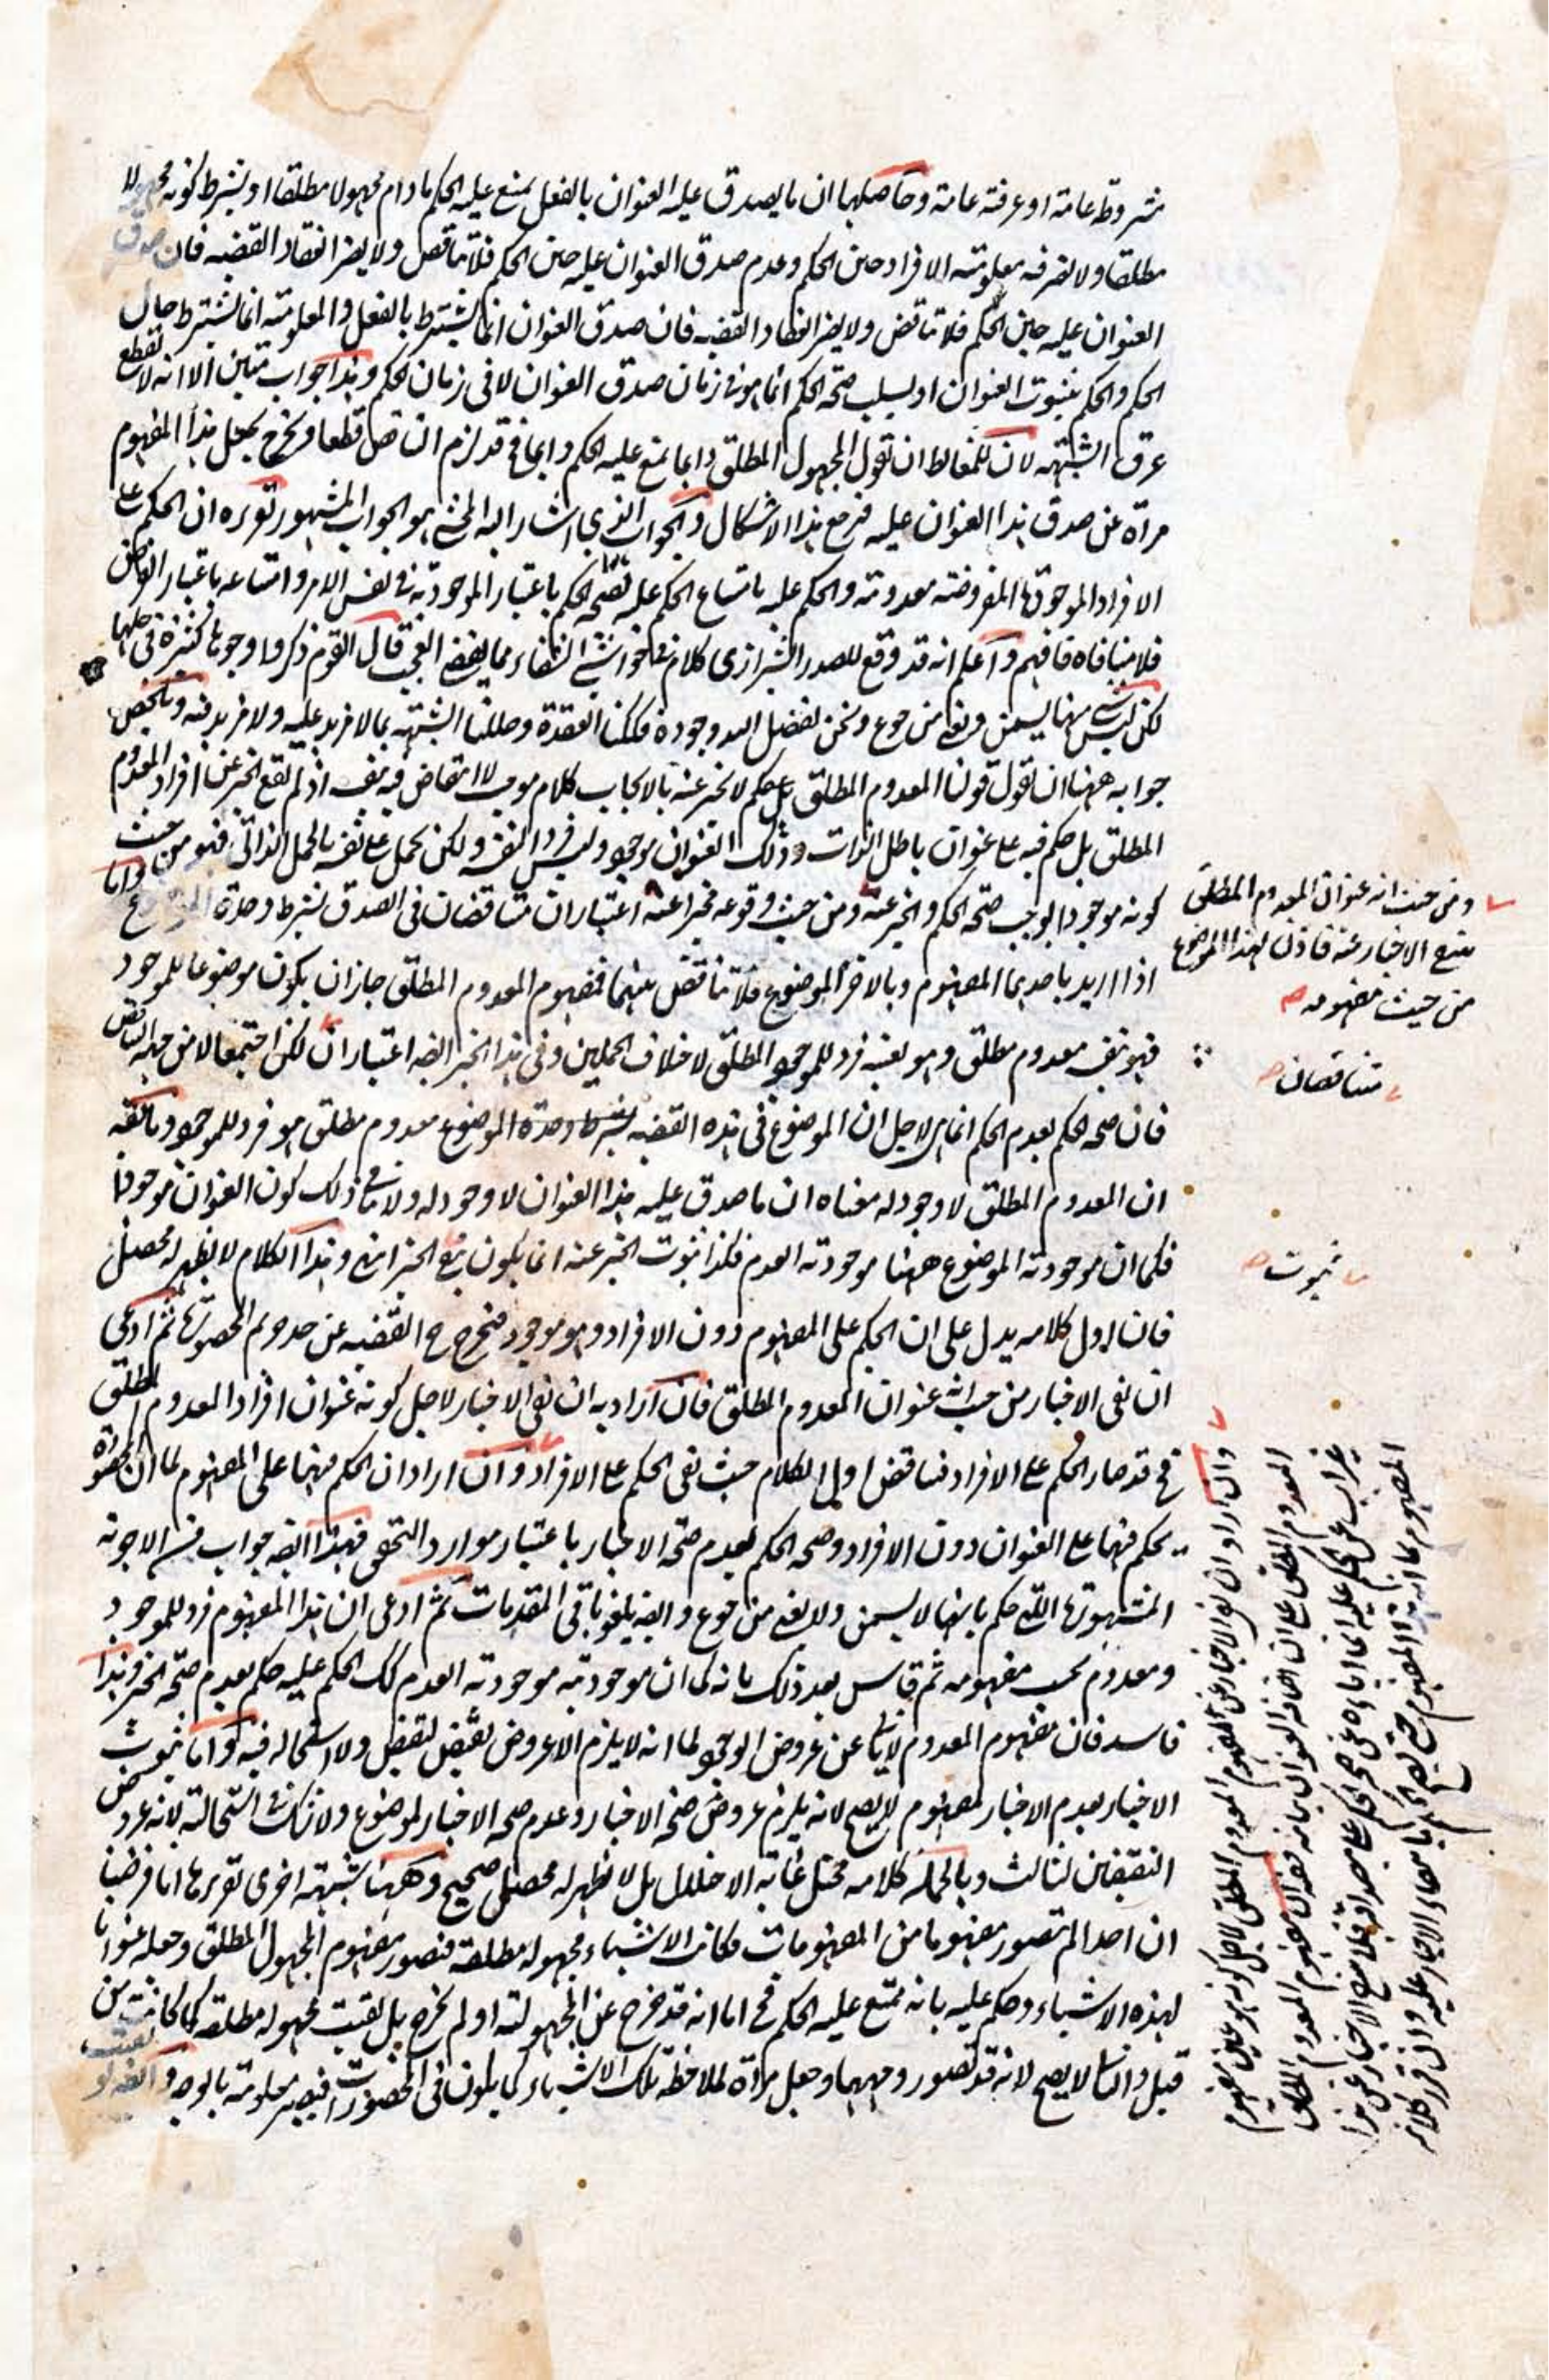 مشروطة عامة او عرفية عامة وحاصلها ان ما يصدق عليه العنوان بالفعل يمتنع عليه الحكم ما دام مجهولا مطلقا او بشرط كونه مجهولا
مطلقا ولا يضر فيه معلومية الافراد حين الحكم وعدم صدق العنوان عليه حين الحكم فلا تناقض ولا يضر انعقاد القضيه فان صدق
العنوان عليه حين الحكم فلا تناقض ولا يضر انعقاد القضيه فان صدق العنوان انما يشترط بالفعل والمعلومية انما يشترط حال
الحكم والحكم بثبوت العنوان او بسلب صحة الحكم انما هو فى زمان صدق العنوان لا فى زمان الحكم وهذا جواب متين الا انه لا يقطع
عرق الشبهة لان للمغالط ان يقول المجهول المطلق دايما يمتنع عليه الحكم دايما فح قد لزم التناقض قطعا ويخرج بجعل هذا المفهوم
مرآة عن صدق هذا العنوان عليه فيرجع هذا الاشكال والجواب الذي اشار اليه المحشى هو الجواب المشهور تقريره ان الحكم على
الافراد الموجودة المفروضة معدومة والحكم عليه بامتناع الحكم عليه فصحة الحكم باعتبار الموجودية فى نفس الامر وامتناعه باعتبار الفرض
فلا منافاه فافهم واعلم انه قد وقع للصدر الشيرازى كلام فى حواشى الشفاء مما يقضى العجب قال القوم ذكروا وجوها كثيرة فى حلها
لكن ليس شى منها يسمن ويغنى من جوع ونحن بفضل الله وجوده فككنا العقدة وحللنا الشبهة بما لا مزيد عليه ولا مزيد فيه وتلخيص
جوابه ههنا ان نقول قولنا المعدوم المطلق على حكم لا يخبر عنه بالايجاب كلام موجب لا انتقاض فيه بنفسه اذ لم يقع الخبر عن افراد المعدوم
المطلق بل حكم فيه على عنوان باطل الذات وذلك العنوان موجود وليس فردا لنفسه ولكن يحمل على نفسه بالحمل الذاتى فهو من حيث
كونه موجودا يوجب صحة الحكم والخبر عنه ومن حيث وقوعه مخبرا عنه اعتباران متناقضان فى الصدق بشرط وحدة الموضوع واما
اذا اريد باحدهما المفهوم وبالاخر الموضوع فلا تناقض بينهما فمفهوم المعدوم المطلق جاز ان يكون موضوعا للموجود
فهو بنفسه معدوم مطلق وهو بعينه فرد للموجود المطلق لاختلاف الحملين وفى هذا الخبر ايضه اعتباران لكن اجتمعا لا من جهة التناقض
فان صحة الحكم بعدم الحكم انما هى لاجل ان الموضوع فى هذه القضيه بشرط وحدة الموضوع معدوم مطلق هو فرد للموجود ما يقه
ان المعدوم المطلق لا وجود له معناه ان ما صدق عليه هذا العنوان لا وجود له ولا ينافى ذلك كون العنوان موجودا
فكما ان موجودية الموضوع ههنا موجودية العدم فكذا ثبوت الخبر عنه انما يكون بنفى الخبر انتهى وهذا الكلام لا يظهر له محصل
فان اول كلامه يدل على ان الحكم على المفهوم دون الافراد وهو موجود فيخرج ح القضيه عن حد حريم المحصورات ثم ادعى
ان نفى الاخبار من حيث انه عنوان المعدوم المطلق فان اراد به ان نفى الاخبار لاجل كونه عنوان افراد المعدوم المطلق
فح قد صار الحكم على الافراد فناقض اول الكلام حيث نفى الحكم على الافراد وان اراد ان الحكم فيهما على المفهوم لما ان المحصورة
يحكم فيها على العنوان دون الافراد وصحة الحكم بعدم صحة الاخبار باعتبار موارد التحقق فهذا ايضه جواب من الاجوبة
المشهورة التى حكم بانها لا يسمن ولا يغنى من جوع وايضه يلغو باقى المقدمات ثم ادعى ان هذا المفهوم فرد للموجود
ومعدوم بحسب مفهومه ثم قاس بعد ذلك بانه كما ان موجوديته موجودية العدم كك الحكم عليه حكم بعدم صحة الخبر وهذا
فاسد فان مفهوم المعدوم لا يابى عن عروض الوجود لما انه لا يلزم الا عروض نقيض لنقيض ولا استحاله فيه واما ثبوت
الاخبار بعدم الاخبار لمفهوم لا يصح لانه يلزم عروض صحة الاخبار وعدم صحة الاخبار لموضوع ولا شك فى استحالته لانه عروض
النقيضين لثالث وبالجمله كلامه مختل غاية الاختلال بل لا يظهر له محصل صحيح وههنا شبهة اخرى تقريرها انا فرضنا
ان احدا لم يتصور مفهوما من المفهومات فكانت الاشياء مجهوله مطلقة فتصور مفهوم المجهول المطلق وجعله عنوانا
لهذه الاشياء وحكم عليه بانه يمتنع عليه الحكم فح اما انه قد خرج عن المجهولية او لم يخرج بل بقيت مجهوله مطلقه كما كانت من
قبل والثانى لا يصح لانه قد تصور وجهها وجعل مرآة لملاحظة تلك الاشياء كما يكون فى المحصورات فيصير معلومة بالوجه وايضه لو بقيت
ومن حيث انه عنوان المعدوم المطلق
يمتنع الاخبار عنه فاذن لهذا الموضوع
من حيث مفهومه
متناقضان
ثبوت
وان اراد ان نفى الاخبار عن المفهوم المعدوم المطلق لاجل كونه هو عنوان مفهوم
المعدوم المطلق على ان اضافة العنوان بيانه فعنوان مفهوم المعدوم المطلق
غير آب عن الحكم عليه انما اباؤه عن صحة الحكم على مصداقه فلا يمتنع الاخبار عن هذا
المفهوم بما انه هذا المفهوم حتى يصح الحكم بامتناع الاخبار عليه وان قرر كلامه